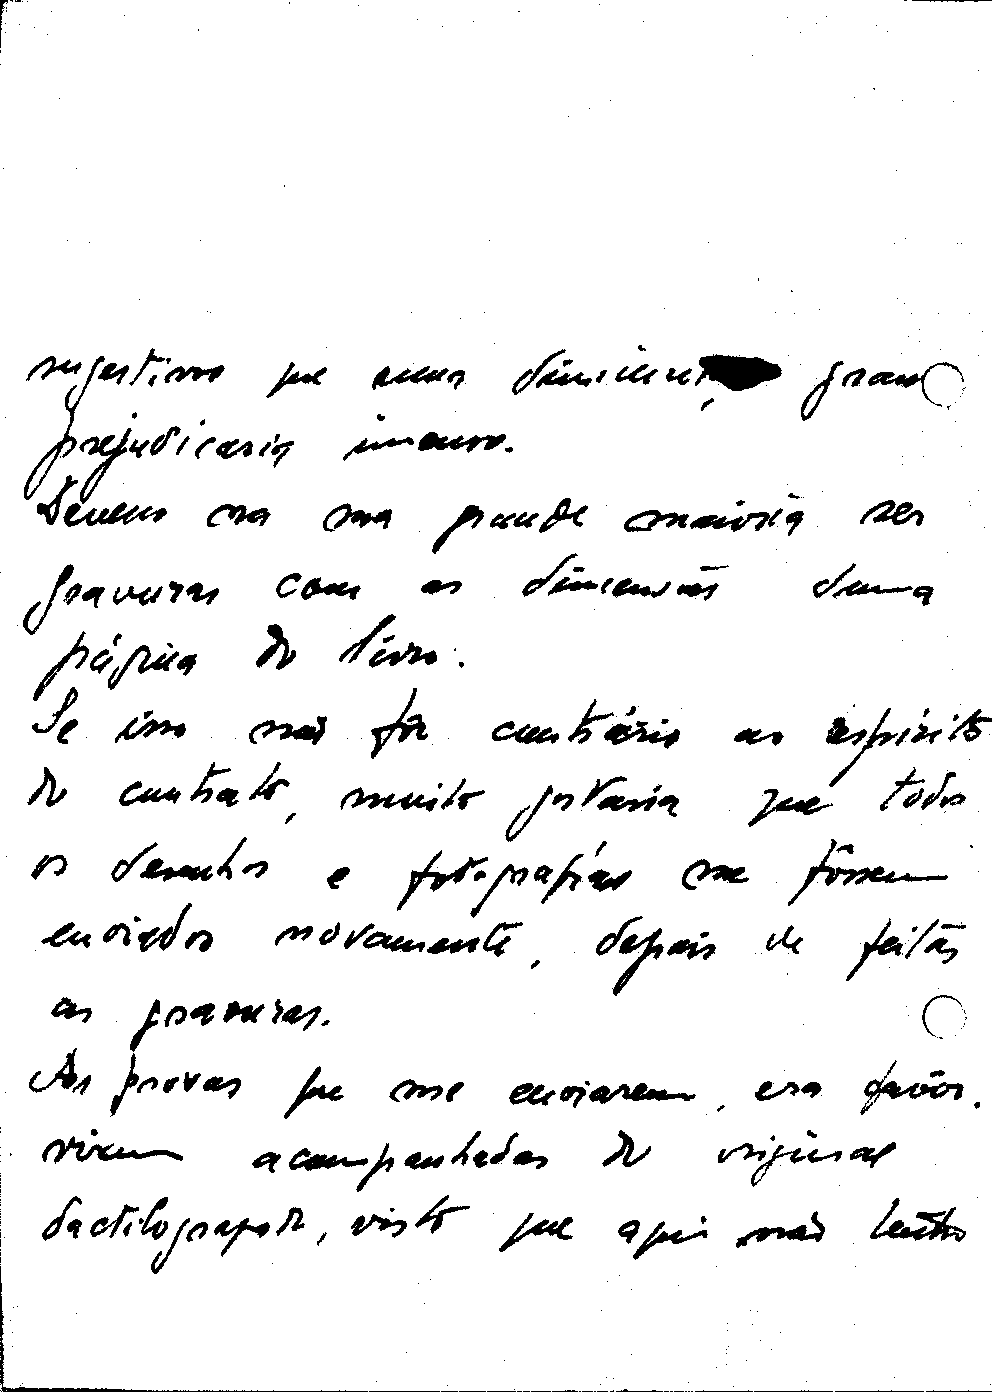 sugestivos que numa diminuta, gran
prejudicaria imenso.
Devem na sua grande maioria ser
gravuras com as dimensões duma
página do livro.
Se isso não fôr contrário ao espírito
do contrato, muito gostaria que todos
os desenhos e fotografias me fôssem
enviados novamente, depois de feitas
as gravuras.
As provas que me enviarem, era favôr.
virem acompanhadas do original
dactilografado, visto que aqui não tenho